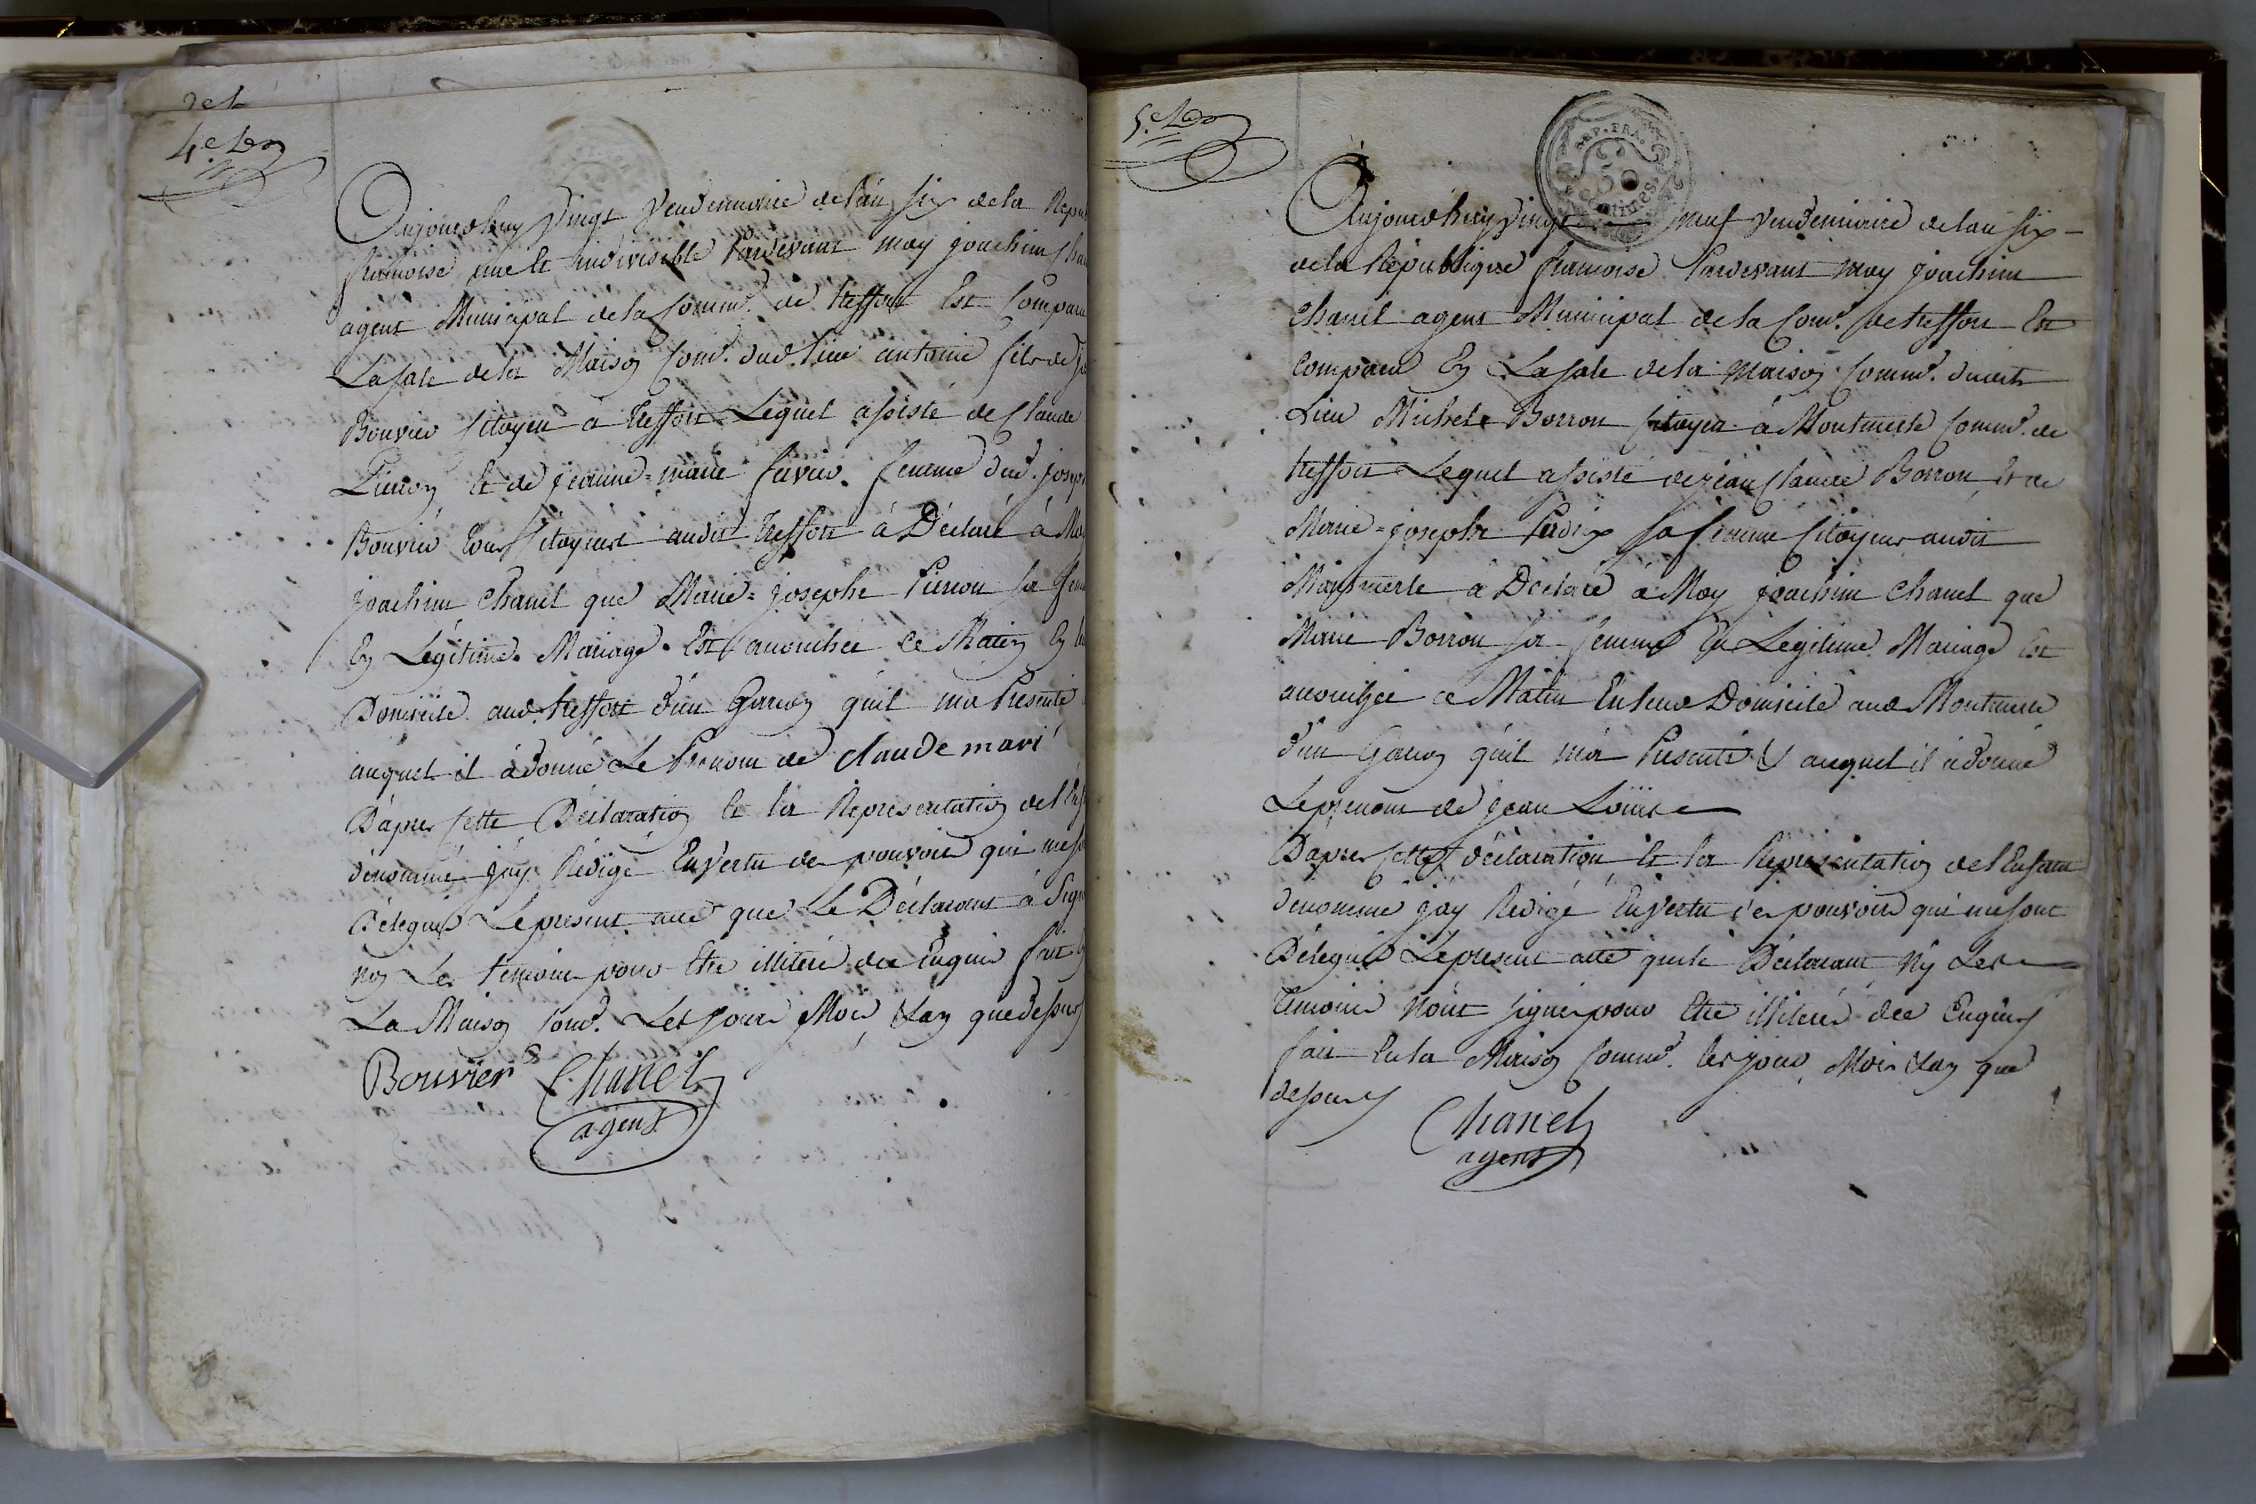 Aujourdhuy Vingt Vendemiaire de lan six de la Repu
francoise une et indivisible Pardevant moy joachim Cha
agent Municipal de la Comm.e de treffort Est Compar
La sale de la Maison Com.e dud. lieu antoine fils de
Bouvier Citoyen à treffort Lequel assisté de Claude
Pierron et de jeanne=marie favier femme dud. joseph
Bouvier tous Citoyens audit treffort à Déclaré à Mo
joachim Chanel que Marie=josephe Pierron sa fem
En Légitime Mariage Est accouchée ce Matin En
Domicile aud. treffort d'un Garcon quil ma Presenté
auquel il à donné Le Prenom de claude mari
D'apres Cette Déclaration et la Representation de l'Enf
dénommé jay Redigé En Vertu des pouvoirs qui me so
Délegués Le present acte que Le Déclarant à Sign
non Les temoins pour Etre illiteré de ce Enquis fait
La Maison Com.e Les jour Mois & an que dessus
Bouvier Chanel
agent
REP. FRA.
50
centimes
Aujourdhuy Vingt neuf Vendemiaire de lan six
de la Republique francoise Pardevant moy joachim
Chanel agent Municipal de la Com.e de treffort Est
Comparu En La sale de la Maison Comm.e dudit
Lieu Michel Borron Citoyen à Montmerle Comm.e de
treffort Lequel assisté de jean Claude Borron et de
Marie=josephe Perdix sa femme Citoyens audit
Montmerle à Déclaré à Moy joachim Chanel que
Marie Borron sa femme En Legitime Mariage Est
accouchée ce Matin En leur Domicile aud Montmerle
d'un Garcon quil m'a Presenté & auquel il à donné
Le prenom de jean Loüis
D'apres Cette déclaration et la Représentation de l'Enfant
dénommé jay Redigé En Vertu des pouvoirs qui me sont
Délegués Le present acte que le Déclarant Ny Les
temoins N'ont signés pour Etre illiterés de ce Enquis
fait En la Maison Comm.e les jour Mois & an que
dessus
Chanel
agent